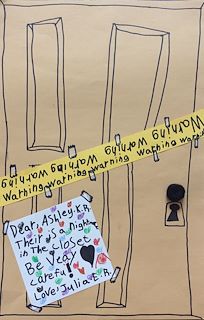 Warning Warning Warning
Warning Warning Warning
Dear, Ashley K.R.
Their is a Night
in The closet
Be Veay
careful!
Love, Julia E.R.